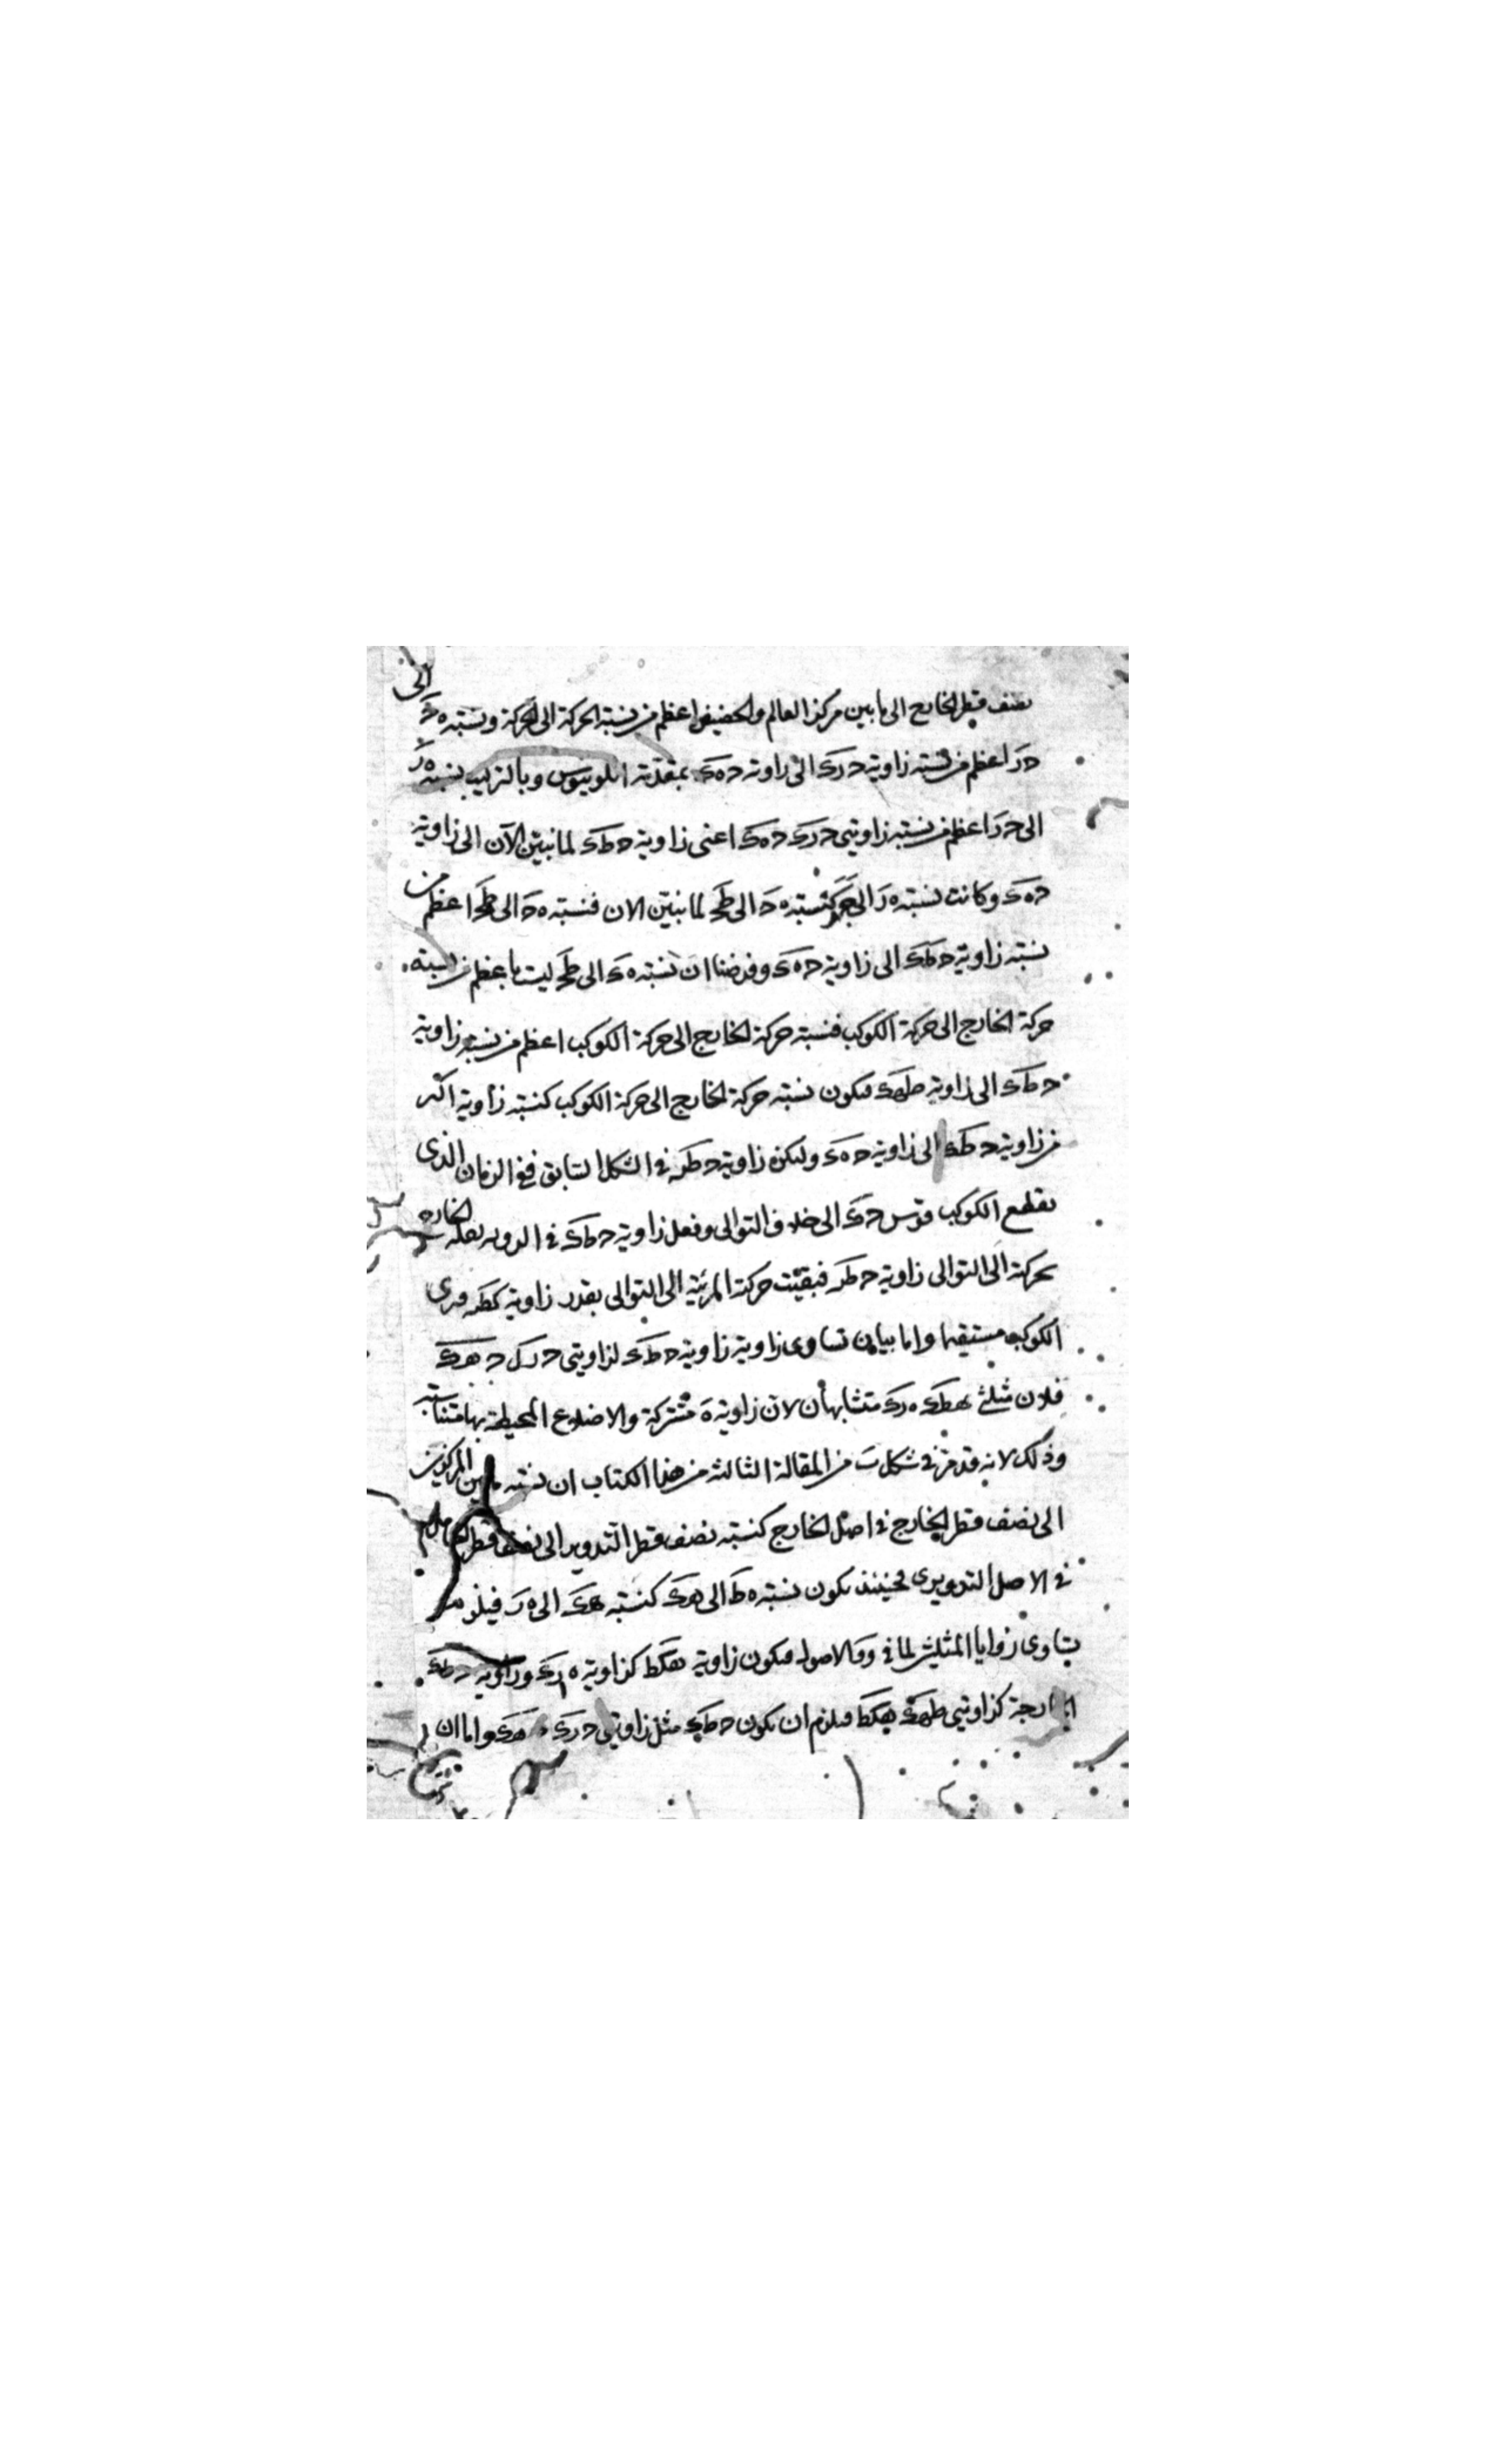 نصف قطر الخارج الى ما بين مركز العالم والحضيض اعظم من نسبة الحركة الى الحركة ونسبة هـ ح الى
ح ر اعظم من نسبة زاوية ح ر ك الى زاوية ح ه ك بمقدمة ابلونيوس وبالتركيب نسبة ه ر
الى ح ر اعظم من نسبة زاويتي ح ر ك ح ه ك اعنى زاوية ح ط ك لما نبين الآن الى زاوية
ح ه ك وكانت نسبة ه ر الى ح ر كنسبة ه ح الى ط ح لما نبين الان فنسبة ه ح الى ط ح اعظم من
نسبة زاوية ح ط ك الى زاوية ح ه ك وفرضنا ان نسبة ه ك الى ط ح ليست باعظم من نسبة
حركة الخارج الى حركة الكوكب فنسبة حركة الخارج الى حركة الكوكب اعظم من نسبة زاوية
ح ط ك الى زاوية ط ه ك فيكون نسبة حركة الخارج الى حركة الكوكب كنسبة زاوية اكبر
من زاوية ح ط ك الى زاوية ح ه ك وليكن زاوية ح ط ر في الشكل السابق ففي الزمان الذى
يقطع الكوكب قوس ح ك الى خلاف التوالى وفعل زاوية ح ط ك في الرويه نقله الخارج
بحركته الى التوالى زاوية ح ط ر فبقيت حركته المرئية الى التوالى بقدر زاوية ك ط ر فيرى
الكوكب مستقيما واما بيان تساوى زاوية زاوية ح ط ك لزاويتي ح ر ك ح ه ك
فلان مثلثي ه ط ك ه ر ك متشابهان لان زاوية ه مشتركة والاضلاع المحيطة بها متناسبة
وذلك لانه قد مر في شكل ب من المقالة الثالثة من هذا الكتاب ان نسبة ما بين المركزين
الى نصف قطر الخارج في اصل الخارج كنسبة نصف قطر التدوير الى نصف قطر الحامل
في الاصل التدويرى فحينئذ يكون نسبة ه ط الى ه ك كنسبة ه ك الى ه ر فيلزم
تساوى زوايا المثلثين لما في و من الاصول فيكون زاوية ه ك ط كزاوية ه ر ك وزاوية ح ط ك
الخارجة كزاويتي ط ه ك ه ك ط فيلزم ان يكون ح ط ك مثل زاويتي ح ر ك ح ه ك واما ان